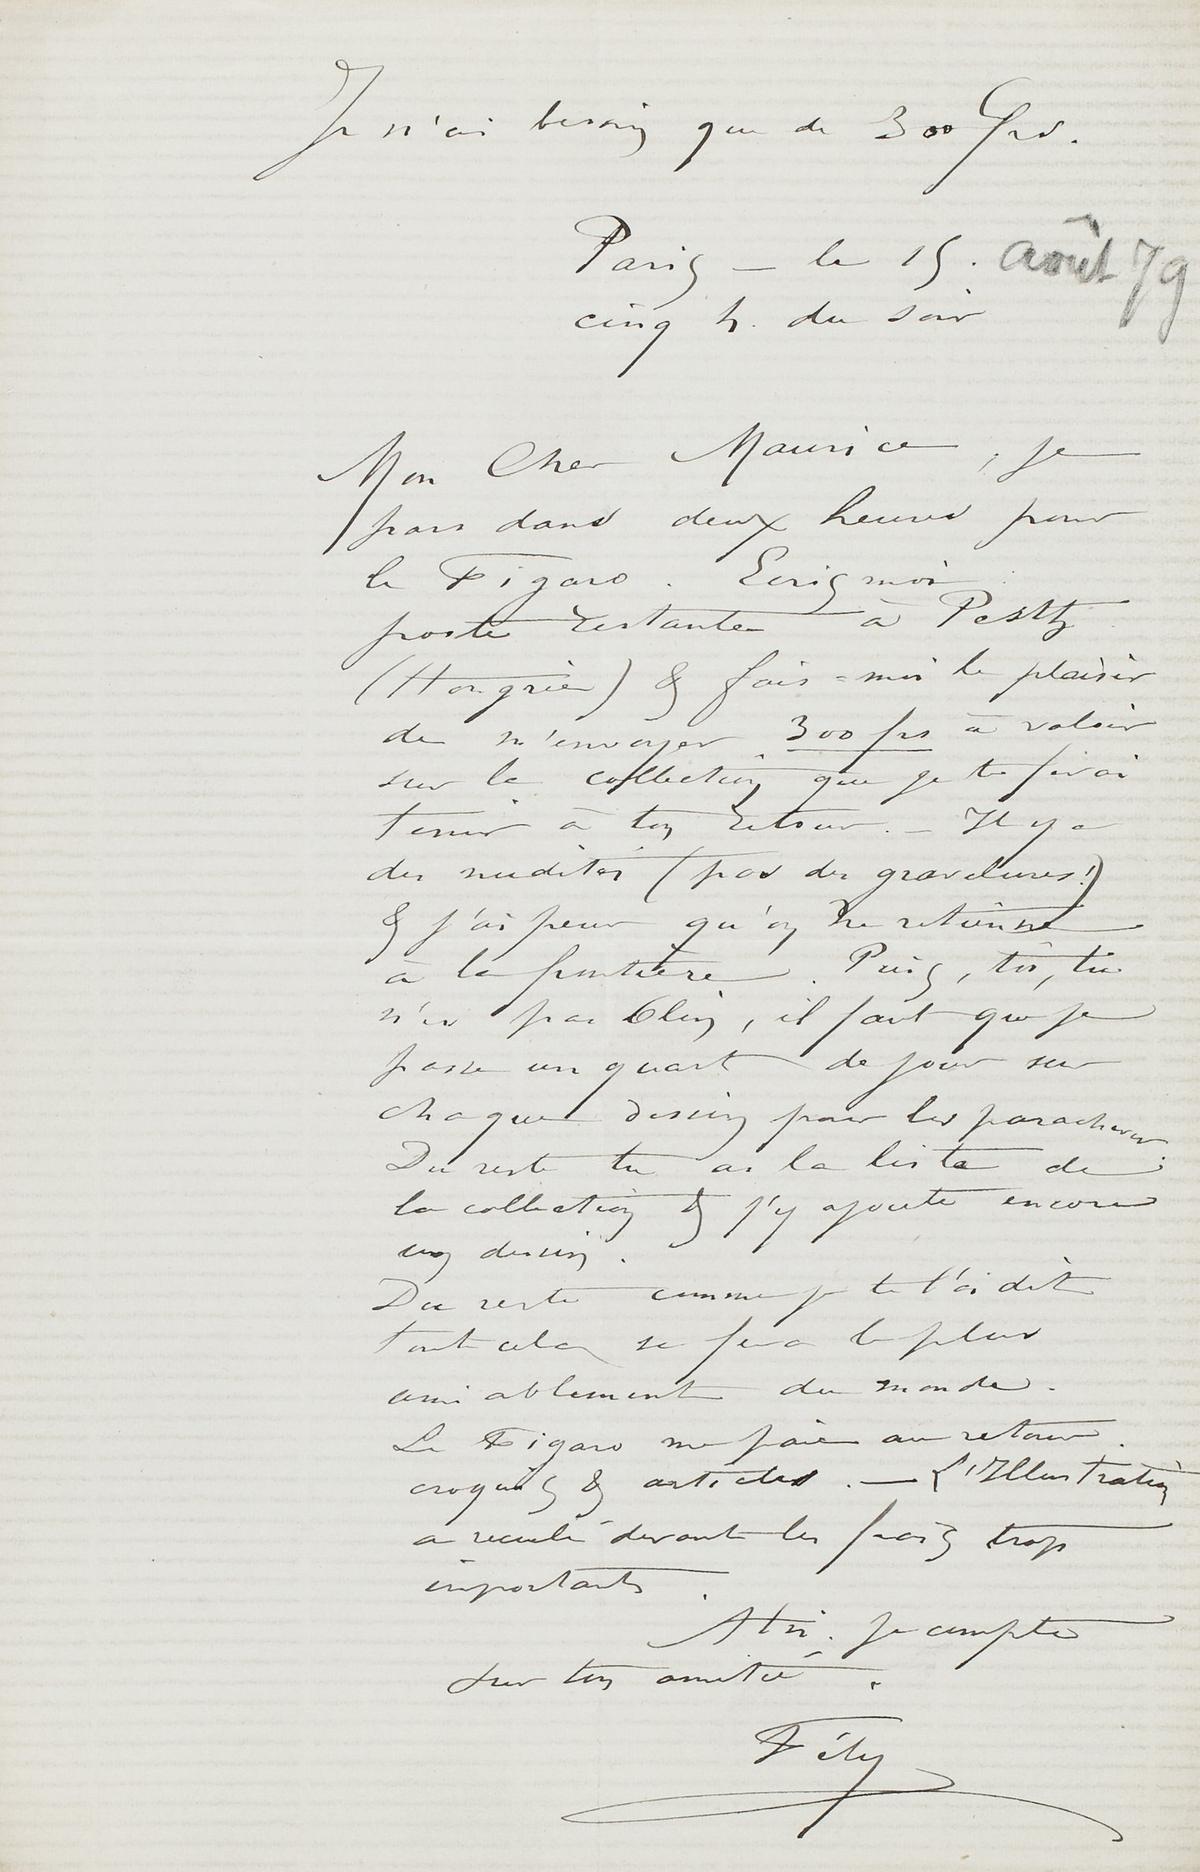 Je n'ai besoin que de 300 frs.
Paris – le 15. août 79
cinq h. du soir
Mon Cher Maurice, je
pars dans deux heures pour
le Figaro. Ecris moi
poste restante à Pesth
(Hongrie) & fais-moi le plaisir
de m'envoyer 300 frs à valoir
sur la collection que je te ferai
tenir à ton retour. – Il y a
des nudités (pas des gravelures!)
& j'ai peur qu'on ne retienne
à la frontière. Puis, toi, tu
n'es pas Olin, il faut que je
passe un quart de jour sur
chaque dessin pour les parachever.
Du reste tu as la liste de
la collection & j'y ajoute encore
un dessin.
Du reste comme je te l'ai dit
tout cela se fera le plus
amiablement du monde.
Le Figaro me paie au retour
croquis & articles. – L'Illustration
a reculé devant les frais trop
importants.
A toi. je compte
sur ton amitié.
Fély